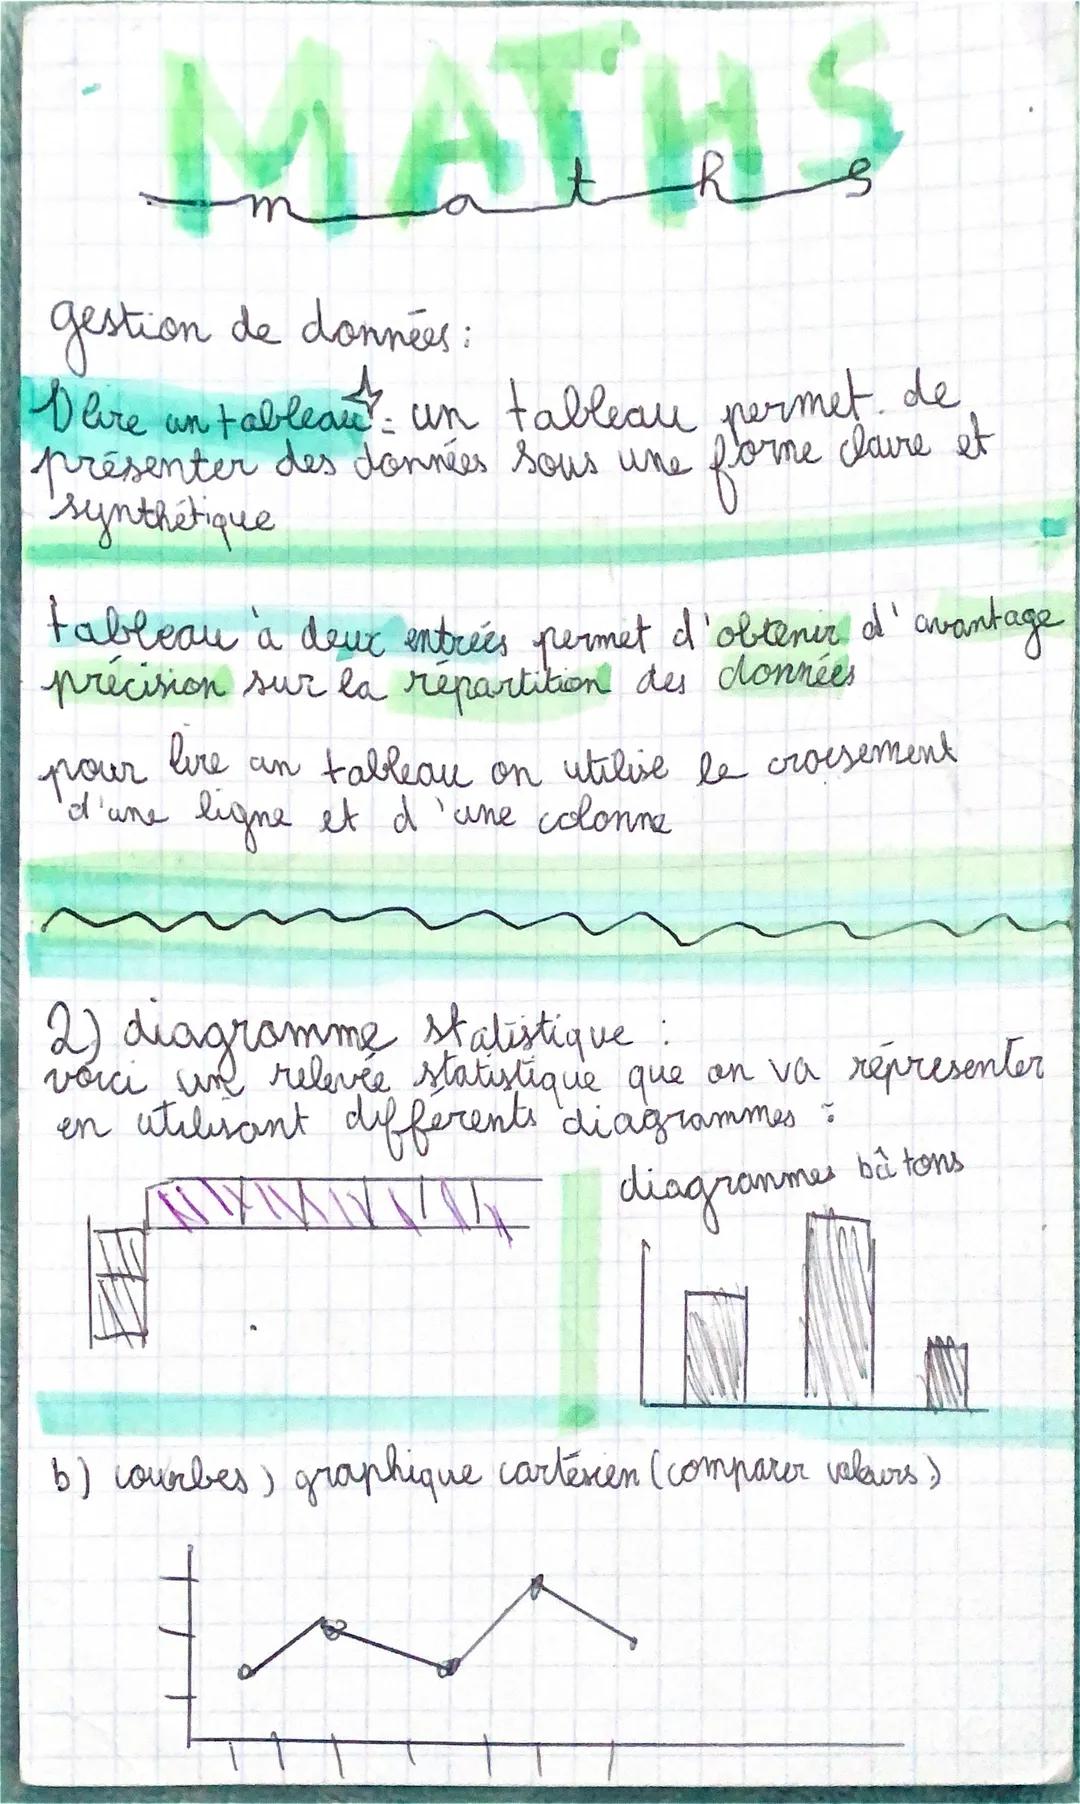 MATHS
maths
gestion de données :
1) lire un tableau : un tableau permet de
présenter des données sous une forme claire et
synthétique
tableau à deux entrées permet d'obtenir d'avantage
précision sur la répartition des données
pour lire un tableau on utilise le croisement
d'une ligne et d'une colonne
2) diagramme statistique :
voici un relevée statistique que on va réprésenter
en utilisant différents diagrammes :
diagrammes bâtons
b) courbes) graphique cartésien (comparer valeurs)